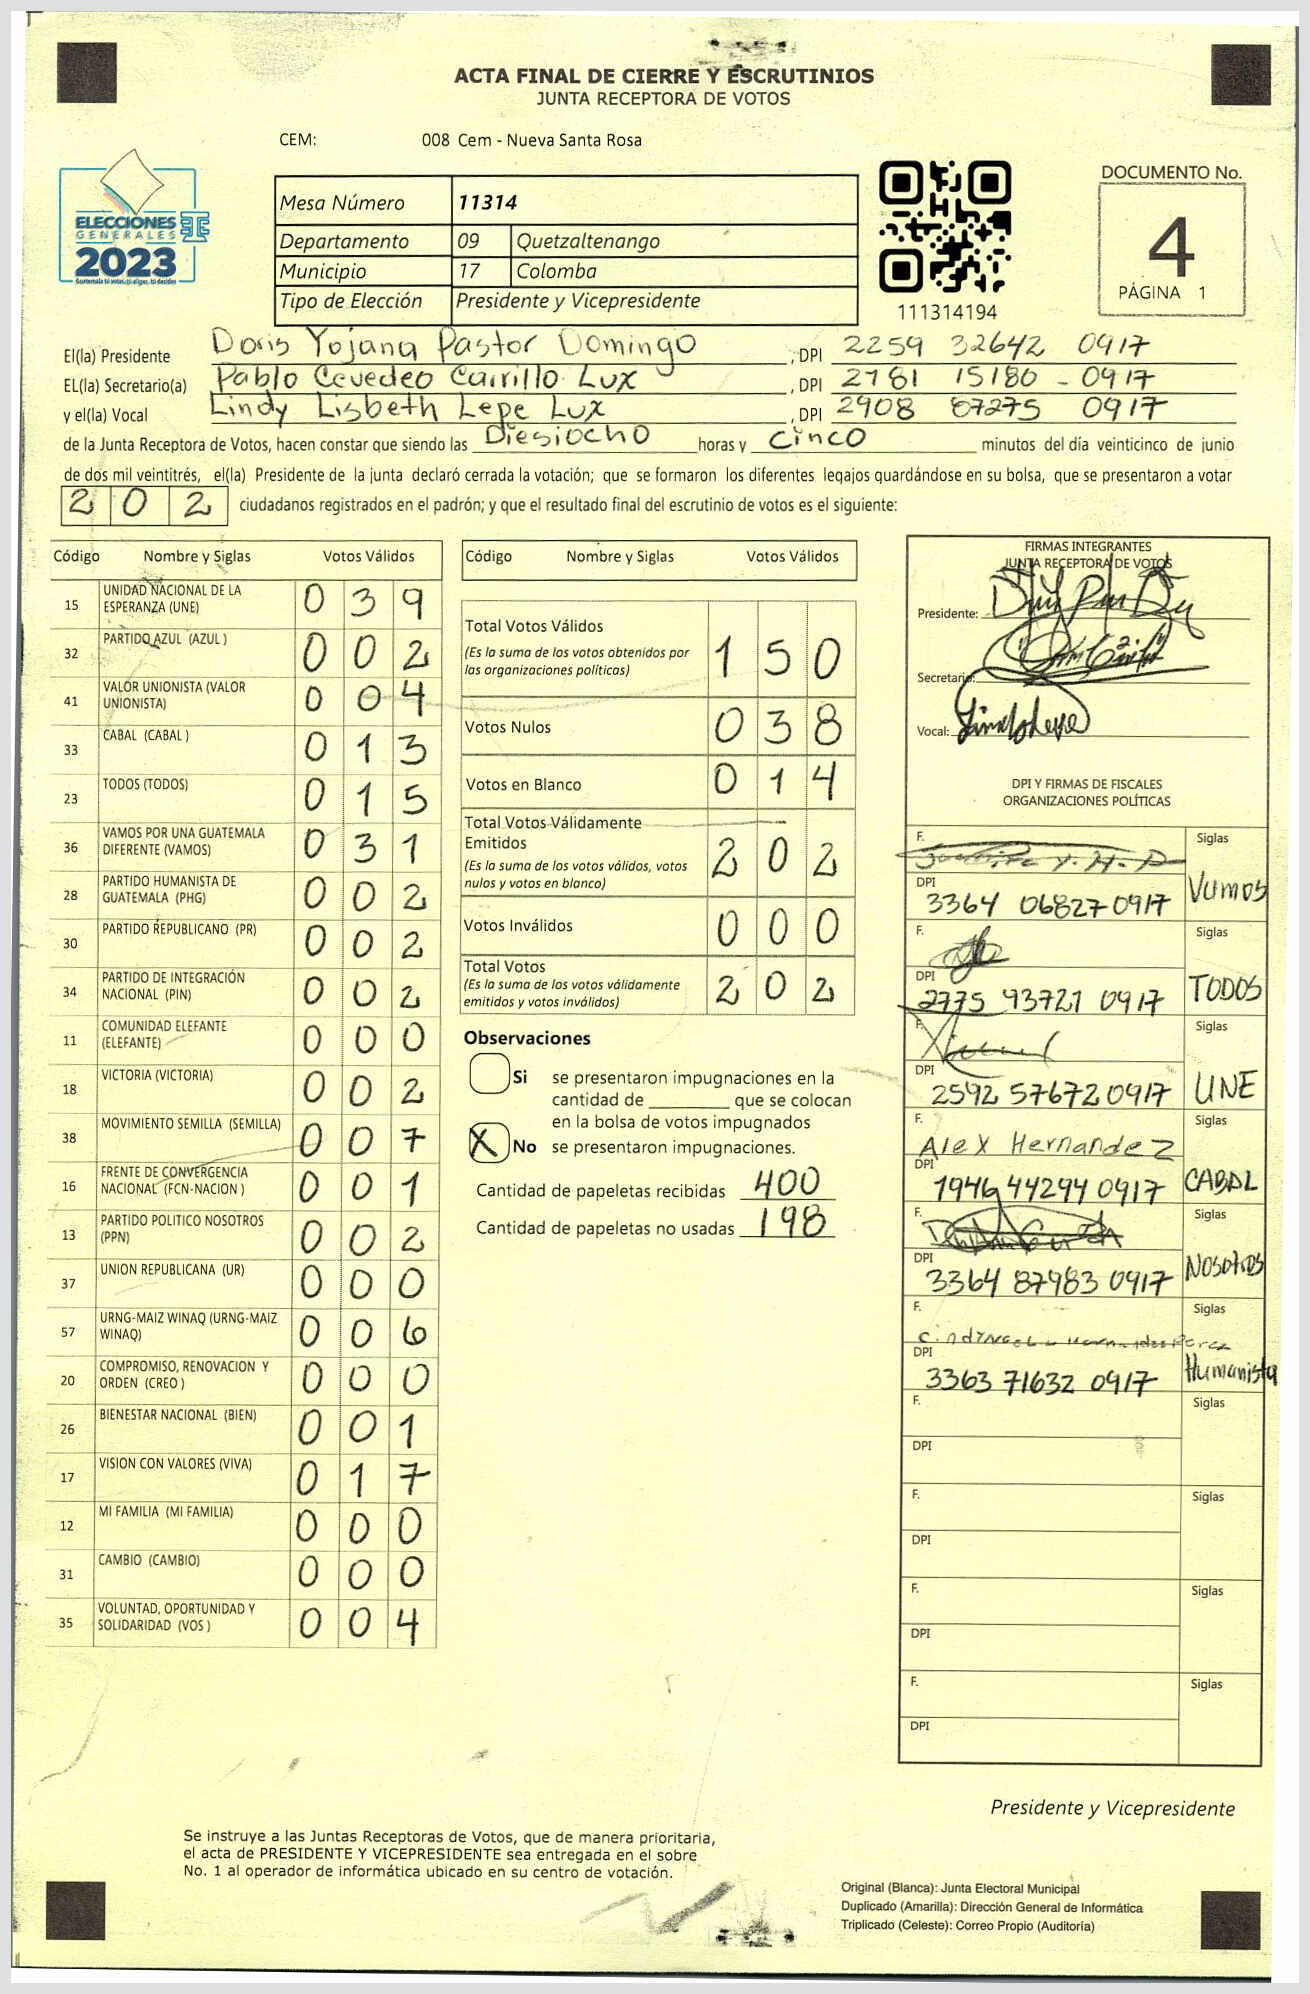 ACTA FINAL DE CIERRE Y ESCRUTINIOS
JUNTA RECEPTORA DE VOTOS
CEM: 008 Cem - Nueva Santa Rosa
ELECCIONES
GENERALES
2023
Mesa Número 11314
Departamento 09 Quetzaltenango
Municipio 17 Colomba
Tipo de Elección Presidente y Vicepresidente
111314194
DOCUMENTO No.
4
PÁGINA 1
El(la) Presidente Doris Yojana Pastor Domingo , DPI 2259 32642 0917
EL(la) Secretario(a) Pablo Cevedeo Carrillo Lux , DPI 2781 15180 - 0917
y el(la) Vocal Lindy Lisbeth Lepe Lux , DPI 2908 87275 0917
de la Junta Receptora de Votos, hacen constar que siendo las Diesiocho horas y cinco minutos del día veinticinco de junio
de dos mil veintitrés, el(la) Presidente de la junta declaró cerrada la votación; que se formaron los diferentes legajos guardándose en su bolsa, que se presentaron a votar
202 ciudadanos registrados en el padrón; y que el resultado final del escrutinio de votos es el siguiente:
Código Nombre y Siglas Votos Válidos
15 UNIDAD NACIONAL DE LA ESPERANZA (UNE) 0 3 9
32 PARTIDO AZUL (AZUL ) 0 0 2
41 VALOR UNIONISTA (VALOR UNIONISTA) 0 0 4
33 CABAL (CABAL ) 0 1 3
23 TODOS (TODOS) 0 1 5
36 VAMOS POR UNA GUATEMALA DIFERENTE (VAMOS) 0 3 1
28 PARTIDO HUMANISTA DE GUATEMALA (PHG) 0 0 2
30 PARTIDO REPUBLICANO (PR) 0 0 2
34 PARTIDO DE INTEGRACIÓN NACIONAL (PIN) 0 0 2
11 COMUNIDAD ELEFANTE (ELEFANTE) 0 0 0
18 VICTORIA (VICTORIA) 0 0 2
38 MOVIMIENTO SEMILLA (SEMILLA) 0 0 7
16 FRENTE DE CONVERGENCIA NACIONAL (FCN-NACION ) 0 0 1
13 PARTIDO POLITICO NOSOTROS (PPN) 0 0 2
37 UNION REPUBLICANA (UR) 0 0 0
57 URNG-MAIZ WINAQ (URNG-MAIZ WINAQ) 0 0 6
20 COMPROMISO, RENOVACION Y ORDEN (CREO ) 0 0 0
26 BIENESTAR NACIONAL (BIEN) 0 0 1
17 VISION CON VALORES (VIVA) 0 1 7
12 MI FAMILIA (MI FAMILIA) 0 0 0
31 CAMBIO (CAMBIO) 0 0 0
35 VOLUNTAD, OPORTUNIDAD Y SOLIDARIDAD (VOS ) 0 0 4
Código Nombre y Siglas Votos Válidos
Total Votos Válidos
(Es la suma de los votos obtenidos por
las organizaciones políticas) 1 5 0
Votos Nulos 0 3 8
Votos en Blanco 0 1 4
Total Votos Válidamente
Emitidos
(Es la suma de los votos válidos, votos
nulos y votos en blanco) 2 0 2
Votos Inválidos 0 0 0
Total Votos
(Es la suma de los votos válidamente
emitidos y votos inválidos) 2 0 2
Observaciones
Si se presentaron impugnaciones en la
cantidad de ________ que se colocan
en la bolsa de votos impugnados
X No se presentaron impugnaciones.
Cantidad de papeletas recibidas 400
Cantidad de papeletas no usadas 198
FIRMAS INTEGRANTES
JUNTA RECEPTORA DE VOTOS
Presidente:
Secretario:
Vocal:
DPI Y FIRMAS DE FISCALES
ORGANIZACIONES POLÍTICAS
F. Siglas
DPI 3364 06827 0917 Vamos
F. Siglas
DPI 2775 93721 0917 TODOS
F. Siglas
DPI 2592 57672 0917 UNE
F. Alex Hernandez Siglas
DPI 1946 44294 0917 CABAL
F. Siglas
DPI 3364 87983 0917 NOSOTROS
F. Siglas
DPI 3363 71632 0917 Humanista
F. Siglas
DPI
F. Siglas
DPI
F. Siglas
DPI
F. Siglas
DPI
Presidente y Vicepresidente
Se instruye a las Juntas Receptoras de Votos, que de manera prioritaria,
el acta de PRESIDENTE Y VICEPRESIDENTE sea entregada en el sobre
No. 1 al operador de informática ubicado en su centro de votación.
Original (Blanca): Junta Electoral Municipal
Duplicado (Amarilla): Dirección General de Informática
Triplicado (Celeste): Correo Propio (Auditoría)